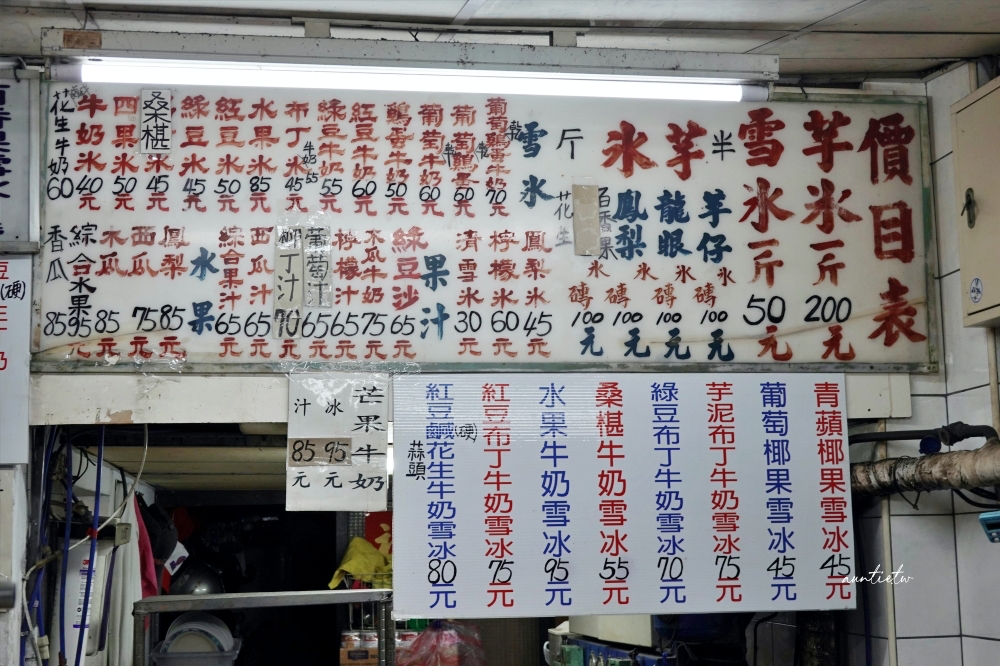 價目表
芋冰一斤200元
雪冰一斤50元
半斤
芋冰
羊仔冰磚100元
龍眼冰磚100元
鳳梨冰磚100元
百香果冰磚100元
花生
雪冰
葡萄乾雞蛋牛奶70元
葡萄乾雞蛋60元
葡萄乾牛奶60元
雞蛋牛奶50元
紅豆牛奶60元
綠豆牛奶55元
布丁冰45元
牛奶55
水果冰85元
紅豆冰50元
綠豆冰45元
桑椹冰45元
四果冰50元
牛奶冰40元
鹹花生牛奶60
鳳梨冰45元
檸檬冰60元
清雪冰30元
果汁
綠豆沙65元
木瓜牛奶75元
檸檬汁65元
葡萄汁65元
柳丁汁70元
西瓜汁65元
綜合果汁65元
水果
鳳梨85元
西瓜75元
木瓜85元
綜合水果95元
香瓜85
青蘋椰果雪冰45元
葡萄椰果雪冰45元
芋泥布丁牛奶雪冰75元
綠豆布丁牛奶雪冰70元
桑椹牛奶雪冰55元
水果牛奶雪冰95元
紅豆布丁牛奶雪冰75元
紅豆鹹花生牛奶雪冰80元
(硬)
蒜頭
芒果牛奶
冰95元
汁85元
(硬)
auntietw